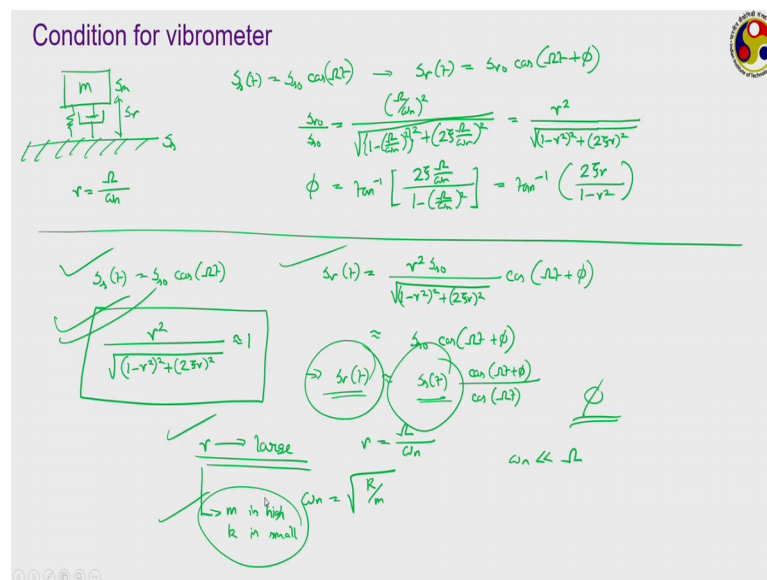 Condition for vibrometer
m
Sm
Sr
Ss
r = Ω/ωn
Ss(t) = Sso cos(Ωt) → Sr(t) = Sro cos(Ωt+φ)
Sro/Sso = (Ω/ωn)²/√{1-(Ω/ωn)²}²+(2ξ Ω/ωn)² = r²/√(1-r²)²+(2ξr)²
φ = tan⁻¹[2ξ Ω/ωn / 1-(Ω/ωn)²] = tan⁻¹(2ξr/1-r²)
Ss(t) = Sso cos(Ωt)
Sr(t) = r² Sso/√(1-r²)²+(2ξr)² cos(Ωt+φ)
r²/√(1-r²)²+(2ξr)² ≈ 1
≈ Sso cos(Ωt+φ)
→ Sr(t) ≈ Ss(t) cos(Ωt+φ)/cos(Ωt)
φ
r → large
r = Ω/ωn
ωn << Ω
ωn = √k/m
↳ m is high
k is small